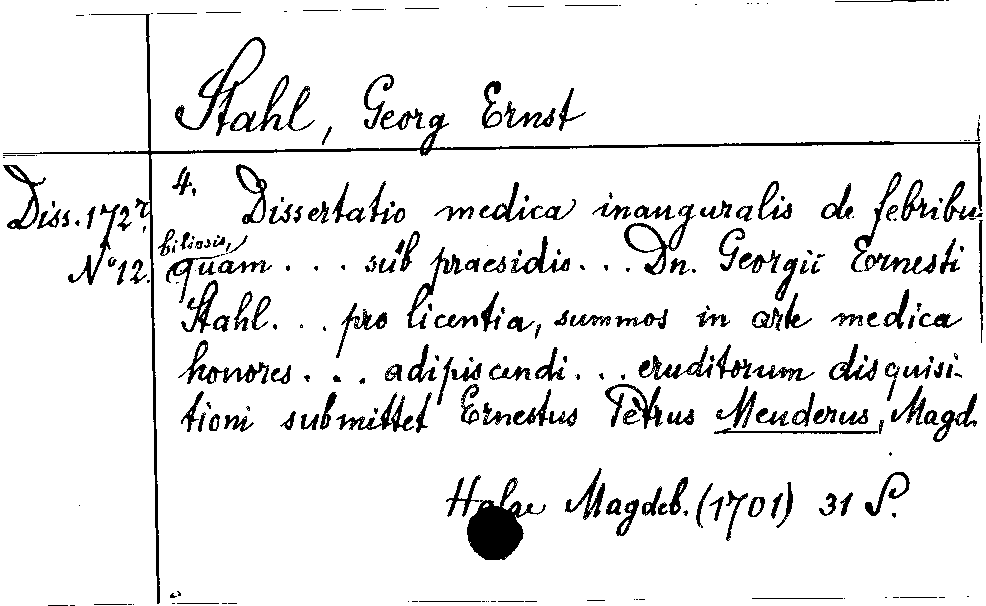 Stahl, Georg Ernst
Diss. 172r.
No 12.
4. Dissertatio medica inauguralis de febribus
biliosis,
quam... sub praesidio... Dn. Georgii Ernesti
Stahl... pro licentia, summos in arte medica
honores... adipiscendi... eruditorum disquisi-
tioni submittet Ernestus Petrus Meuderus, Magd.
Halae Magdeb. (1701) 31 S.